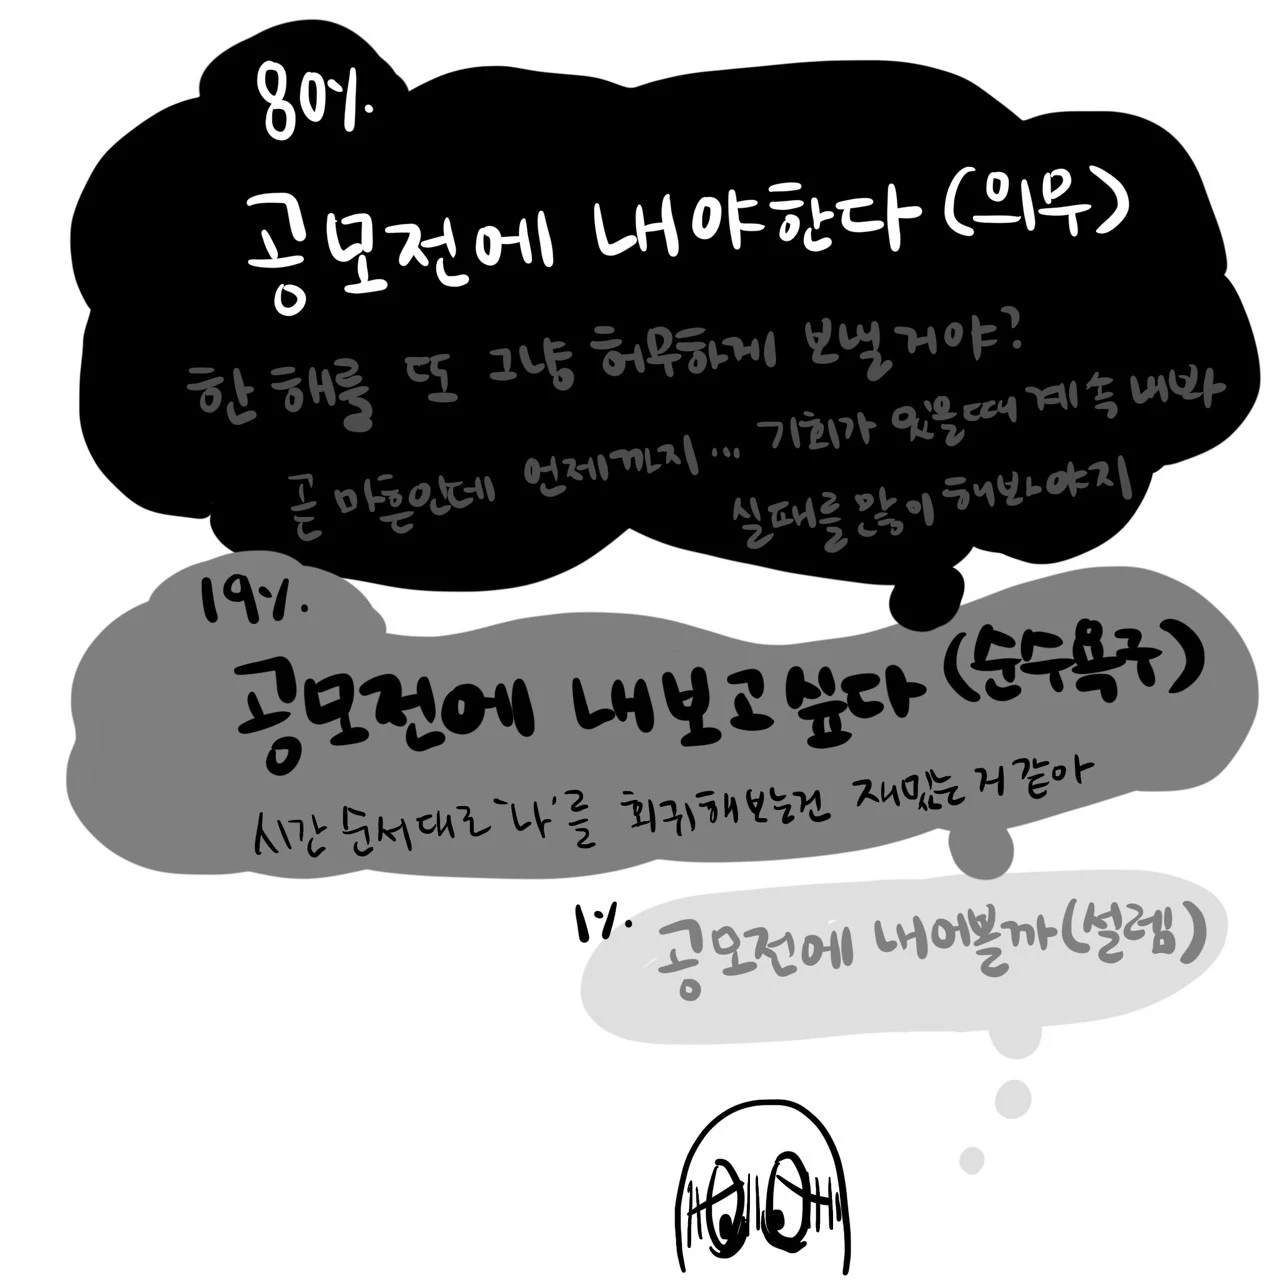 80%
공모전에 내야한다 (의무)
한 해를 또 그냥 허무하게 보낼거야?
곧 마흔인데 언제까지... 기회가 있을때 계속 내봐
실패를 많이 해봐야지
19%
공모전에 내보고싶다 (순수욕구)
시간 순서대로 '나'를 회귀해보는건 재밌는 거 같아
1%
공모전에 내어볼까 (설렘)